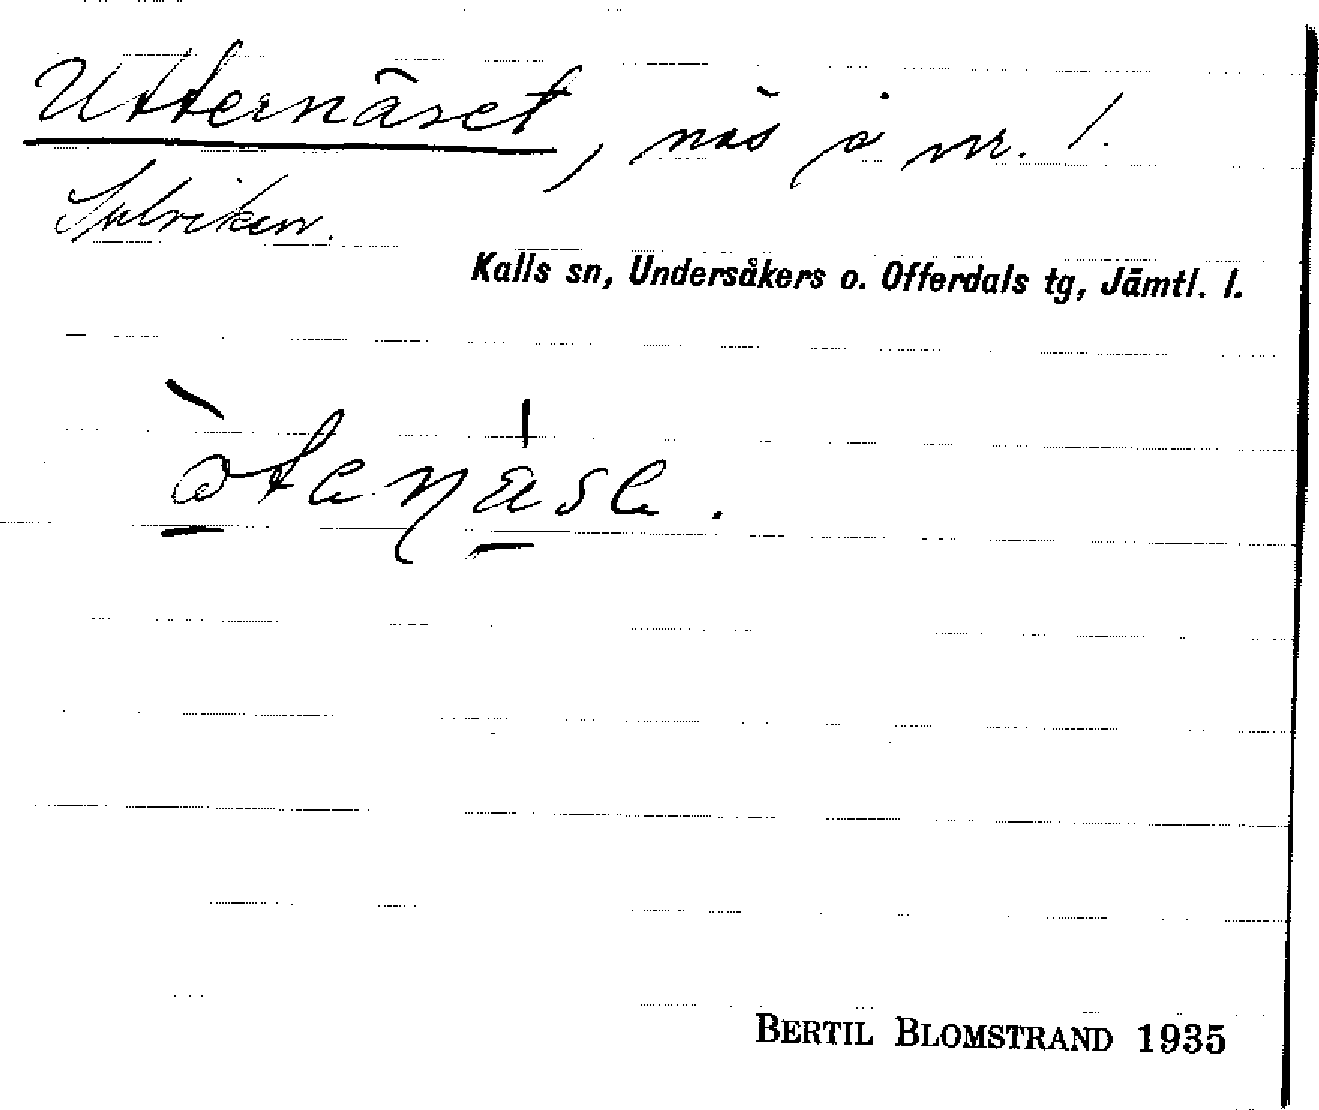 Utternäset, näs på nr. 1.
Sulviken.
Kalls sn, Undersåkers o. Offerdals tg, Jämtl. l.
BERTIL BLOMSTRAND 1935